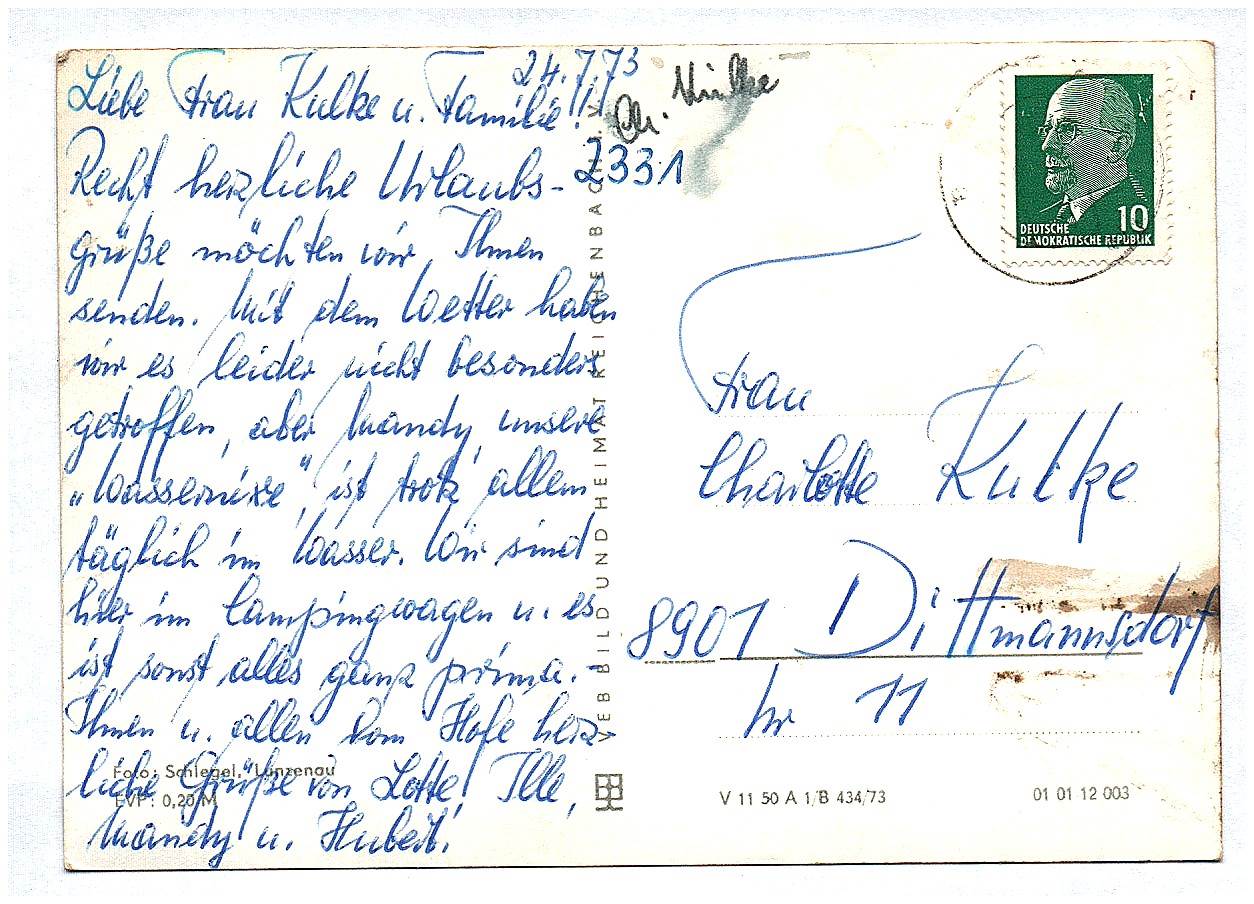 24.7.73
Liebe Frau Kulke u. Familie!
Recht herzliche Urlaubs-
grüße möchten wir Ihnen
senden. Mit dem Wetter haben
wir es leider nicht besonders
getroffen, aber Mandy, unsere
„Wassernixe", ist trotz allem
täglich im Wasser. Wir sind
hier im Campingwagen u. es
ist sonst alles ganz prima.-
Ihnen u. allen vom Hofe herz-
liche Grüße von Lotte, Ille,
Mandy u. Hubert.
Foto: Schlegel, Lunzenau
EVP: 0,20 M
VEB BILD UND HEIMAT REICHENBACH I. V.
Ch. Kulke
2331
10
DEUTSCHE
DEMOKRATISCHE REPUBLIK
Frau
Charlotte Kulke
8901 Dittmannsdorf
Nr 11
V 11 50 A 1/B 434/73
01 01 12 003